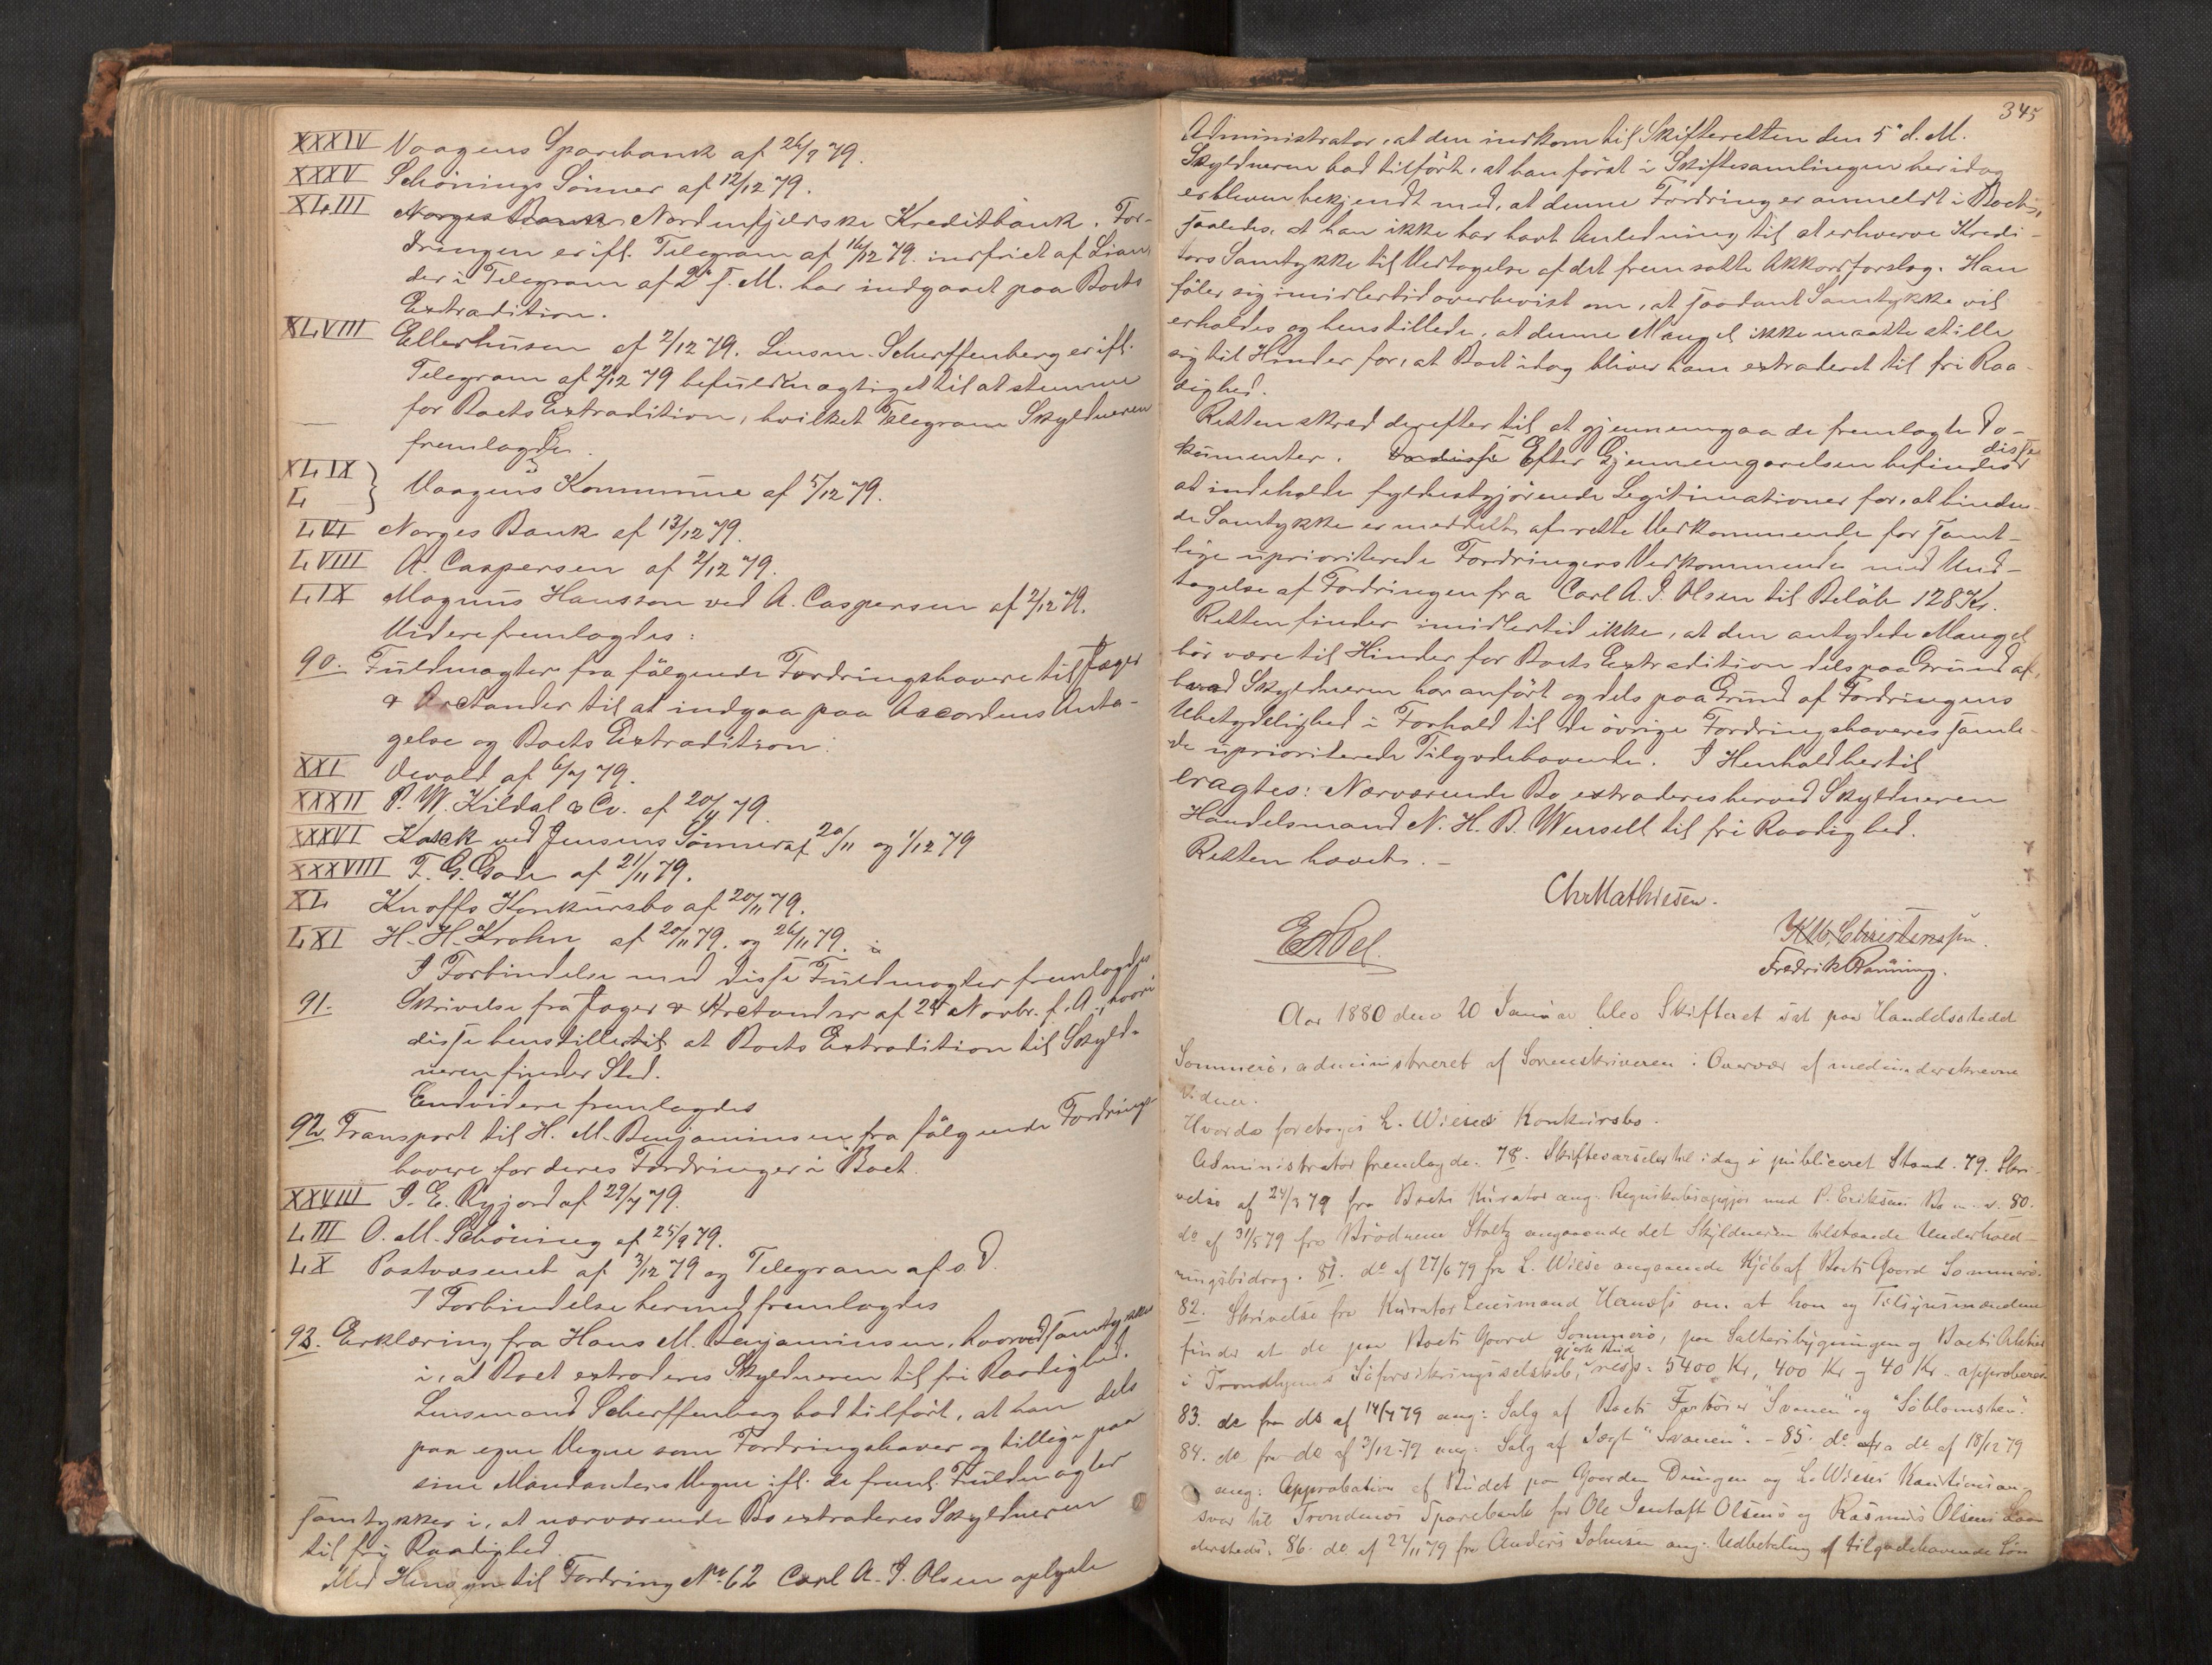 XXXIV Vaagens Sparebank af 26/9 79.
XXXV Schönings Sönner af 12/12 79.
XLIII Norges Bank Nordenfjeldske Kreditbank. For-
dringen er ifl. Telegram af 16/12 79. indfriet af
der i Telegram af 2 f. M. har indgaaet paa Boets
Extradition.
XLVIII Ellerhüsen af 2/12 79. Lensm. Scherffenberg er ifl.
Telegram af 2/12 79 befuldmægtiget til at stemme
for Boets Extradition, hvilket Telegram Skyldneren
fremlagde.
XLIX
L } Vaagens Kommune af 5/12 79.
LVI Norges Bank af 13/12 79.
LVIII A. Caspersen af 2/12 79.
LIX Magnus Hansson ved A. Caspersen af 2/12 79.
Videre fremlagdes:
90. Fuldmagter fra følgende Fordringshavere til Jæger
& Arctander til at indgaa paa Accordens Anta-
gelse og Boets Extradition:
XXI Devold af 79.
XXXII P. W. Kildal & Co. af 79.
XXXVI ved Jensens Sönner af 20/11 og 1/12 79
XXXVIII F. G. Gade af 21/11 79.
XL Knoffs Konkursbo af 20/11 79.
LXI H. H. Krohn af 20/11 79. og 26/11 79.
I Forbindelse med disse Fuldmagter fremlagdes
91. Skrivelse fra Jæger & Arctander af Novbr. f. A., hvori
disse henstiller til at Boets Extradition til Skyld-
neren finder Sted.
Endvidere fremlagdes
92. Transport til H. M. Benjaminsen fra følgende Fordrings-
havere for deres Fordringer i Boet.
XXVIII I. E. Ryjord af 79.
LIII O. M. Schöning af 25/9 79.
LX Postvæsenet af 3/12 79 og Telegram af s. D.
I Forbindelse hermed fremlagdes
93. Erklæring fra Hans M. Benjaminsen, hvorved samtykkes
i, at Boet extraderes Skyldneren til fri Raadighed.
Lensmand Scherffenberg bad tilført, at han dels
paa egne Vegne som Fordringshaver og tillige paa
sine Mandanters Vegne ifl. de freml. Fuldmagter
samtykker i, at nærværende Bo extraderes Skyldneren
til fri Raadighed.
Med Hensyn til Fordring No 62 Carl A. J. Olsen oplyste
345
Administrator, at den indkom til Skifteretten den 5 d. M.
Skyldneren bad tilført, at han først i Skiftesamlingen her idag
er bleven bekjendt med, at denne Fordring er anmeldt i Boet,
saaledes, at han ikke har havt Anledning til at erhverve Kredi-
tors Samtykke til Vedtagelse af det fremsatte Akkordforslag. Han
føler sig imidlertid overbevist om, at saadant Samtykke vil
erholdes og henstillede, at denne Mangel ikke maatte stille
sig til Hinder for, at Boet idag bliver ham extraderet til fri Raa-
dighed.
Retten skred derefter til at gjennemgaa de fremlagte Do-
kumenter. Efter Gjennemgaaelsen befindes disse
at indeholde fyldestgjørende Legitimationer for, at binden-
de Samtykke er meddelt af rette Vedkommende for samt-
lige uprioriterede Fordringers Vedkommende med Und-
tagelse af Fordringen fra Carl A. J. Olsen til Beløb 128 Kr.
Retten finder imidlertid ikke, at den antydede Mangel
bör være til Hinder for Boets Extradition dels paa Grund af,
hvad Skyldneren har anført og dels paa Grund af Fordringens
Ubetydelighed i Forhold til de övrige Fordringshaveres samle-
de uprioriterede Tilgodehavende. I Henhold hertil
eragtes: Nærværende Bo extraderes herved Skyldneren
Handelsmand N. H. B. Wensell til fri Raadighed.
Retten hævet.
Chr Mathiesen.
Christenssen.
Fredrik Rönning.
Aar 1880 den 20 Januar blev Skifteret sat paa Handelsstedet
Sommerö, administreret af Sorenskriveren i Overvær af medunderskrevne
Vidner.
Hvorda foretoges L. Wieses Konkursbo.
Administrator fremlagde: 78. Skiftevarsel til idag i publiceret Stand. 79. Skri-
velse af 24/3 79 fra Boets Kurator ang. Regnskabsopgjør med P. Eriksens Bo m. v. 80.
do af 31/5 79 fra Brödrene Stoltz angaaende det Skyldneren tilstaaede Underhold-
ningsbidrag. 81. do af 27/6 79 fra L. Wiese angaaende Kjöb af Boets Gaard Sommerö.
82. Skrivelse fra Kurator Lensmand om at han og Tilsynsmændene
finder at de paa Boets Gaard Sommerö, paa Salteribygningen og Boets Aktier
i Trondhjems Söforsikringsselskab, gjorte Bud resp: 5400 Kr, 400 Kr og 40 Kr approberes.
83. do fra do af 14/7 79 ang: Salg af Boets "Svanen" og "Söblomsten".
84. do fra do af 3/12 79 ang: Salg af Jægt "Svanen". - 85. do fra do af 18/12 79
ang: Approbation af Budet paa Gaarden og L. Wieses Kautionsan-
svar til Trondenes Sparebank for Ole Olsens og Rasmus Olsens Laan
dersteds. 86. do af 22/11 79 fra Anders Johnsen ang. Udbetaling af tilgodehavende Løn